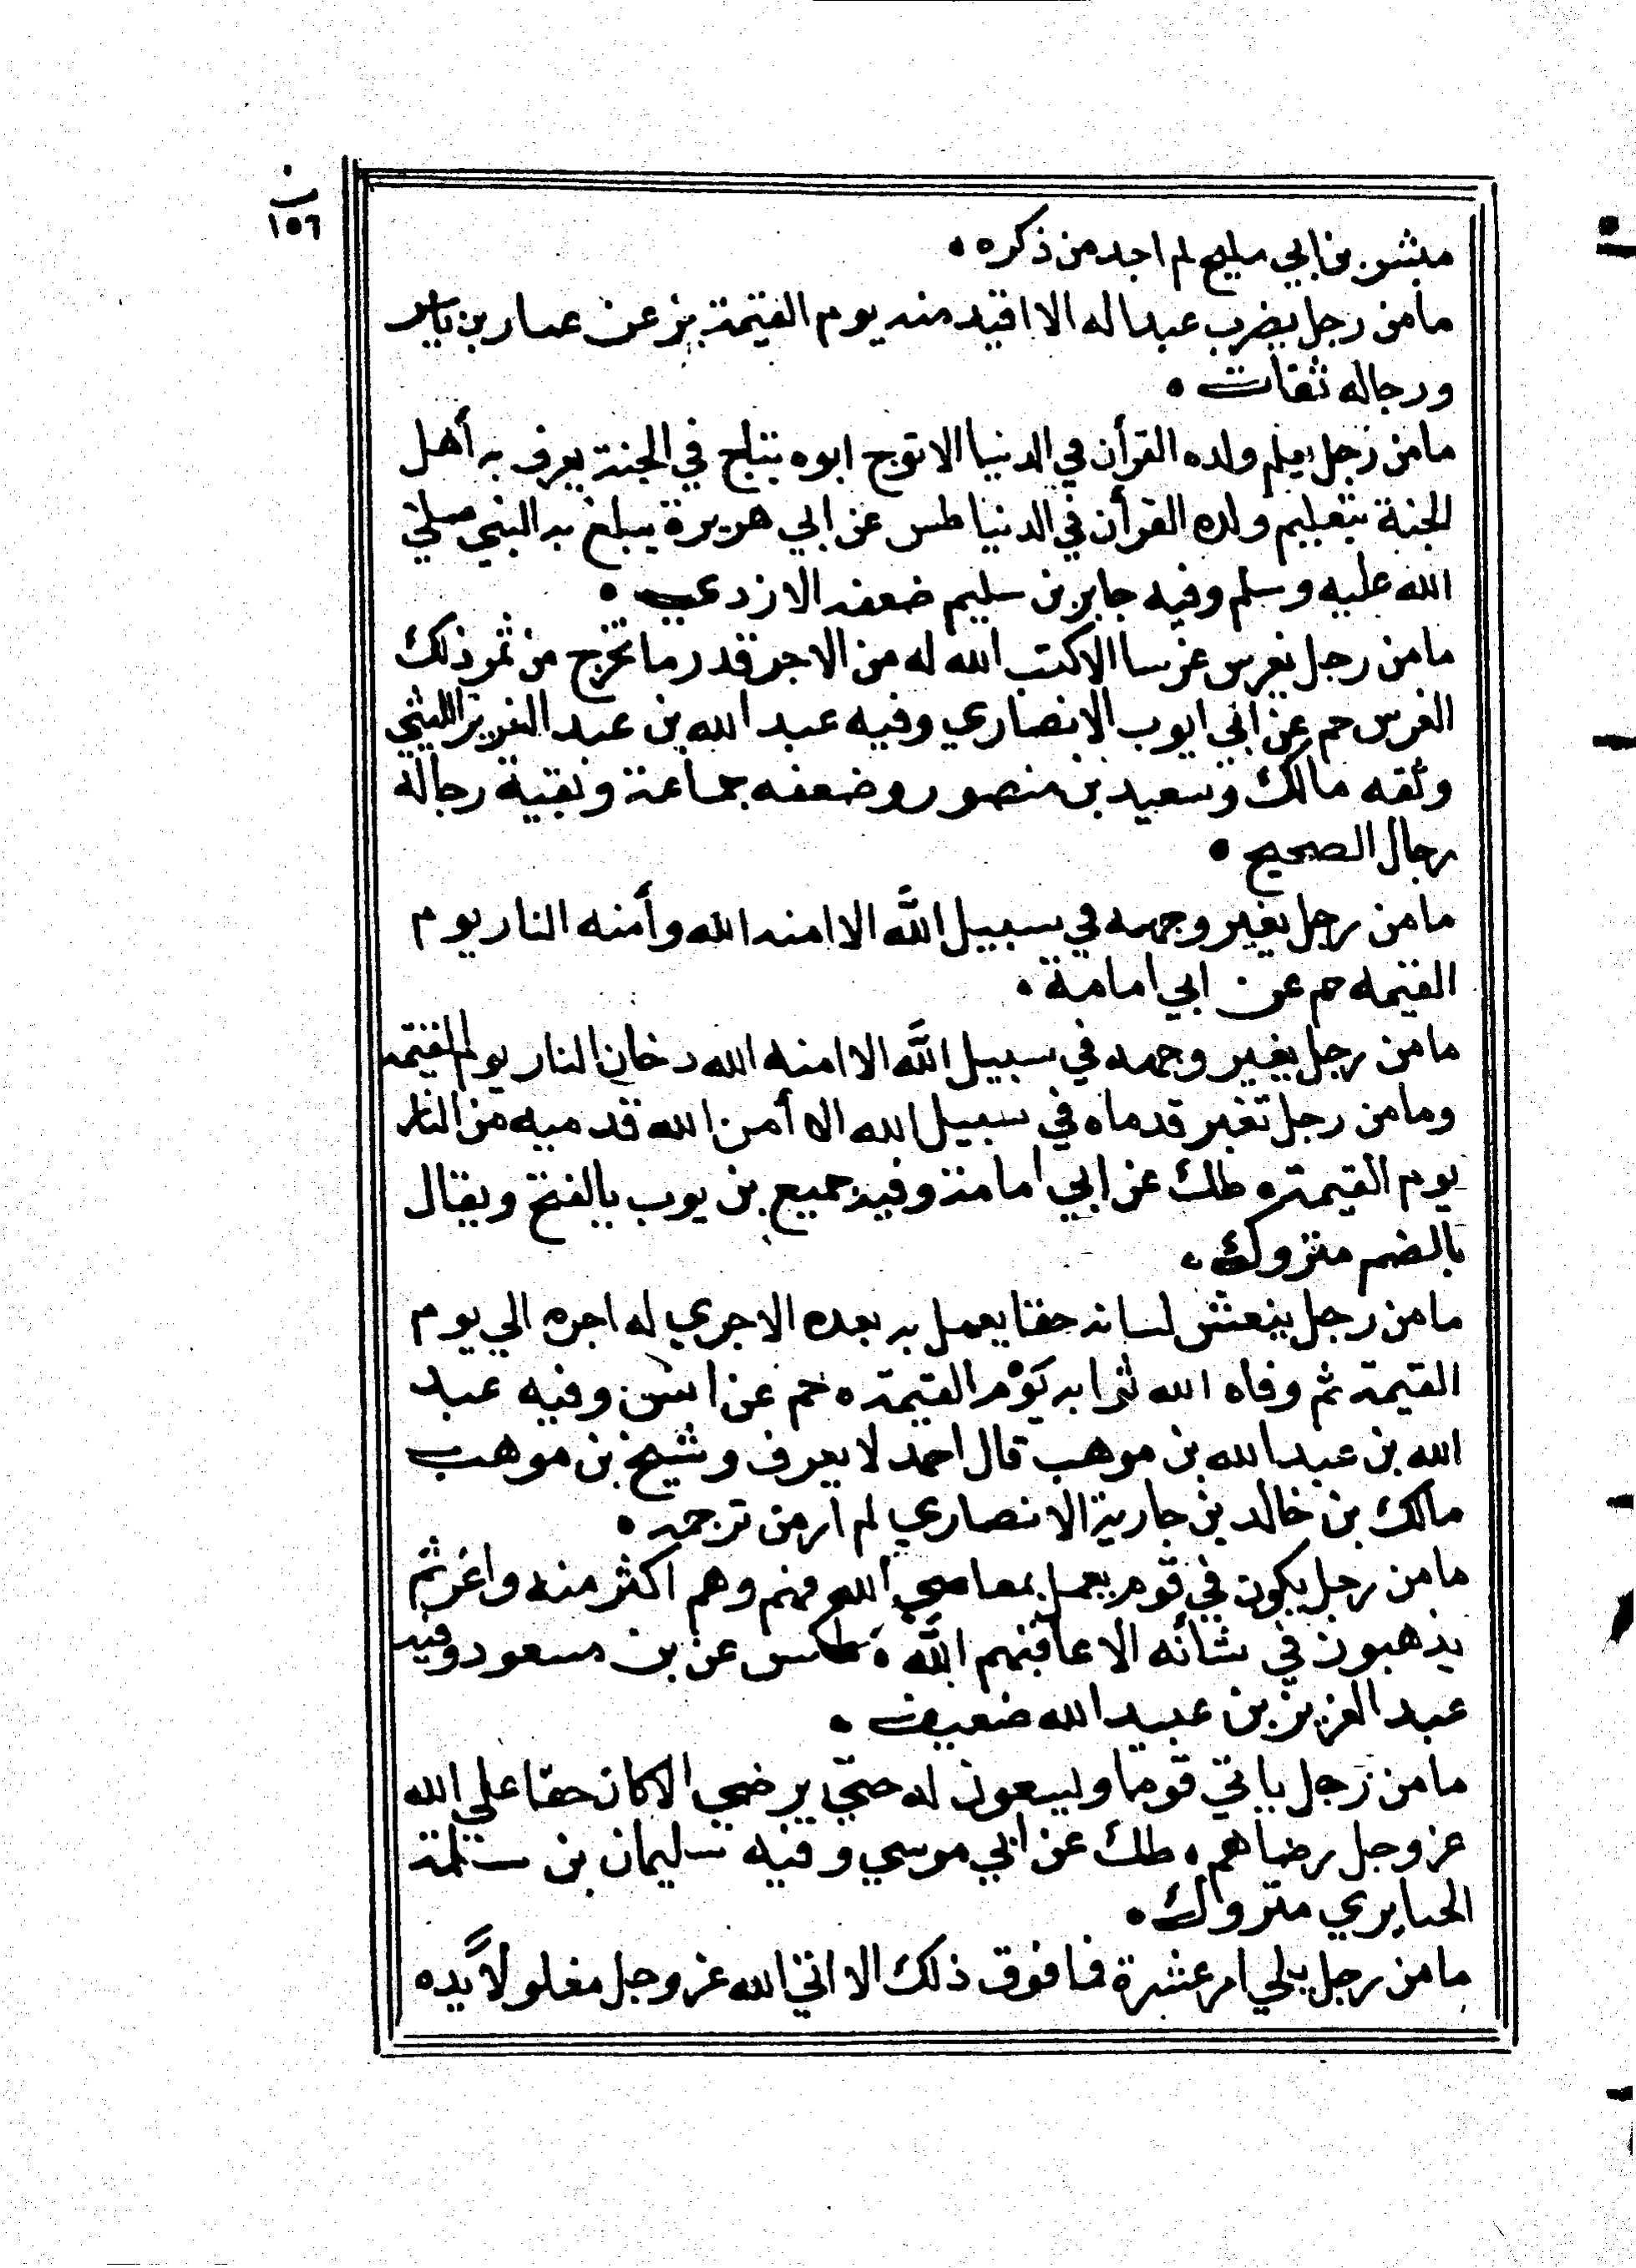 ١٥٦
مبشر بن ابي مليح لم اجد من ذكره •
ما من رجل يضرب عبدا له الا اقيد منه يوم القيمة بز عن عمار بن ياسر
ورجاله ثقات •
ما من رجل يعلم ولده القرأن في الدنيا الا توج ابوه بتاج في الجنة يعرف به أهل
الجنة بتعليم ولده القرأن في الدنيا طس عن ابي هريرة يبلغ به النبي صلي
الله عليه وسلم وفيه جابر بن سليم ضعفه الازدي •
ما من رجل يغرس غرسا الا كتب الله له من الاجر قدر ما يخرج من ثمر ذلك
الغرس حم عن ابي ايوب الانصاري وفيه عبد الله بن عبد العزيز الليثي
وثقه مالك وسعيد بن منصور وضعفه جماعة وبقية رجاله
رجال الصحيح •
ما من رجل يغبر وجهه في سبيل الله الا امنه الله وأمنه النار يوم
القيمه حم عن ابي امامة •
ما من رجل يغبر وجهه في سبيل الله الا امنه الله دخان النار يوم القيمة
وما من رجل تغبر قدماه في سبيل الله الا أمن الله قدميه من النار
يوم القيمة ه طك عن ابي امامة وفيه جميع بن يوب بالفتح ويقال
بالضم متروك •
ما من رجل ينعش لسانه حقا يعمل به بعده الا جري له اجره الي يوم
القيمة ثم وفاه الله ثوابه يوم القيمة ه حم عن انس وفيه عبد
الله بن عبد الله بن موهب قال احمد لا يعرف وشيخ بن موهب
مالك بن خالد بن جارية الانصاري لم ار من ترجمه •
ما من رجل يكون في قوم يعمل بمعاصي الله فهم وهم اكثر منه واغر ثم
يذهبون في شأنه الا عاقبهم الله • طس عن بن مسعود وفيه
عبد العزيز بن عبيد الله ضعيف •
ما من رجل ياتي قوما وليسعون له حتي يرضي الا كان حقا علي الله
عز وجل رضاهم • طك عن ابي موسي وفيه سليمان بن سلمة
الخبايري متروك •
ما من رجل يلي امر عشرة فما فوق ذلك الا اتي الله عز وجل مغلولاً يده